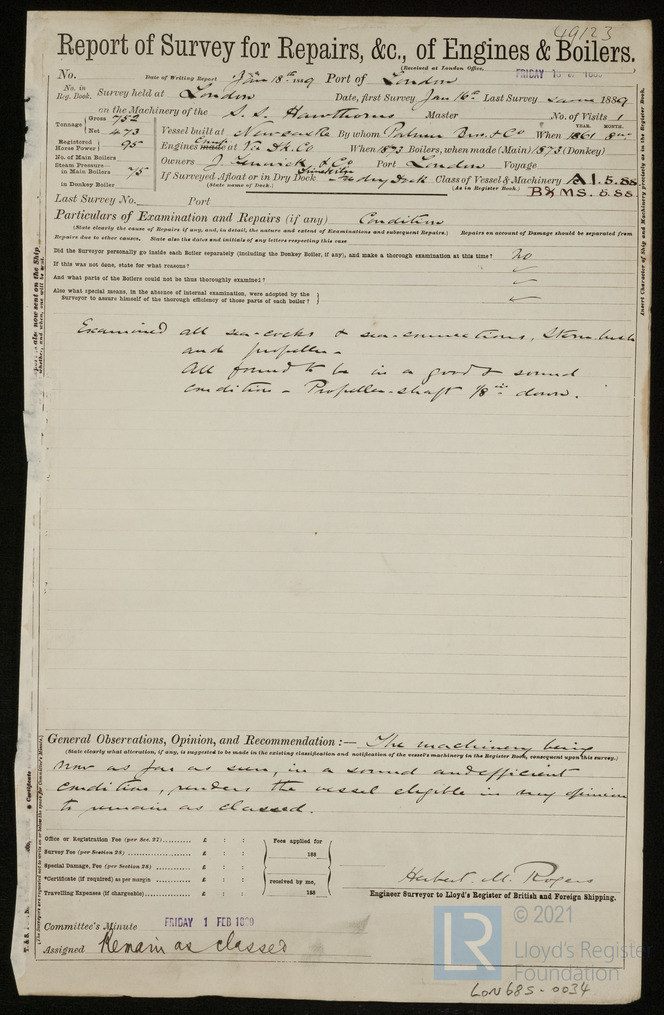 49123
Report of Survey for Repairs, &c., of Engines & Boilers.
(Received at London Office,
No. Date of Writing Report Jan 18th 1889 Port of London FRIDAY
No. in Reg. Book. Survey held at London Date, first Survey Jan 16th Last Survey same 1889
on the Machinery of the S. S. Hawthorns Master No. of Visits 1
Tonnage Gross 752 Net 473
Vessel built at Newcastle By whom Palmer Bros & Co When 1861 YEAR. MONTH. 8
Registered Horse Power 95
Engines made at Co When 1873 Boilers, when made (Main) 1873 (Donkey)
No. of Main Boilers
Owners J. Fenwick & Co Port London Voyage
Steam Pressure in Main Boilers 75
in Donkey Boiler
If Surveyed Afloat or in Dry Dock Dry Dock Class of Vessel & Machinery A1.5.88
(State name of Dock.) (As in Register Book.) MS. 5.88
Last Survey No. Port
Particulars of Examination and Repairs (if any) Condition
(State clearly the cause of Repairs if any, and, in detail, the nature and extent of Examinations and subsequent Repairs.) Repairs on account of Damage should be separated from
Repairs due to other causes. State also the dates and initials of any letters respecting this case
Did the Surveyor personally go inside each Boiler separately (including the Donkey Boiler, if any), and make a thorough examination at this time? No
If this was not done, state for what reasons?
And what parts of the Boilers could not be thus thoroughly examined?
Also what special means, in the absence of internal examination, were adopted by the
Surveyor to assure himself of the thorough efficiency of those parts of each boiler?
Examined all sea-cocks & sea-connections, Stern bush
and propeller -
All found to be in a good & sound
condition - Propeller-shaft 1/8 in down.
General Observations, Opinion, and Recommendation :— The machinery being
(State clearly what alteration, if any, is suggested to be made in the existing classification and notification of the vessel's machinery in the Register Book, consequent upon this survey.)
now as far as seen, in a sound and efficient
condition, renders the vessel eligible in my opinion
to remain as classed.
Office or Registration Fee (per Sec. 27) £ : : Fees applied for
Survey Fee (per Section 28) £ : : 188
Special Damage, Fee (per Section 28) £ : :
*Certificate (if required) as per margin £ : : received by me,
Travelling Expenses (if chargeable) £ : : 188
Herbert M. Rogers
Engineer Surveyor to Lloyd's Register of British and Foreign Shipping.
Committee's Minute FRIDAY 1 FEB
Assigned Remain as classed
LR © 2021
Lloyd's Register
Foundation
LON685-0034
Insert Character of Ship and Machinery precisely as in the Register Book.